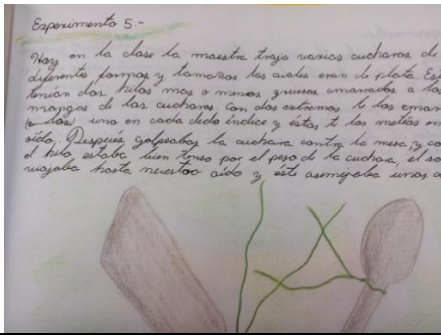 Experimento 5.-
Hoy en la clase la maestra trajo varias cucharas de
diferentes formas y tamaños las cuales eran de plata. Es
tenían dos hilos mas o menos gruesos amarrados a los
mangos de las cucharas. Con dos extremos te los amar
uno en cada dedo índice y éstos te los metías en
oído. Después golpeabas la cuchara contra la mesa, y co
el hilo estaba bien tenso por el peso de la cuchara, el so
viajaba hasta nuestro oído y éste asemejaba unas